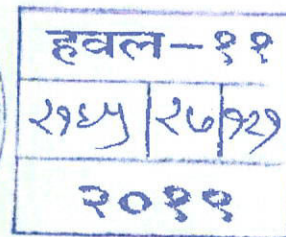 हवल-११
२१६५ | २७ | १२१
२०१९